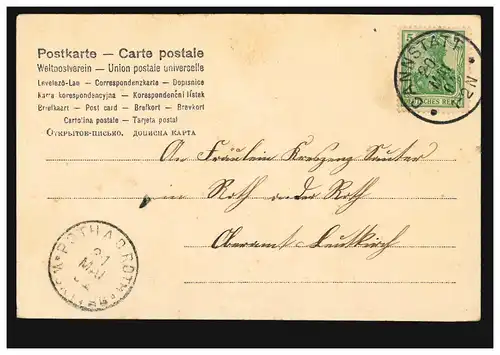 Postkarte — Carte postale
Weltpostverein — Union postale universelle
Levelező-Lap — Correspondenzkarte — Dopisnice
Karta korespondencyjna — Korespondenční lístek
Brielkaart — Post card — Brefkort — Brevkort
Cartolina postale — Tarjeta postal
Открытое письмо. Дописна карта
CANNSTATT
20
MAI
DEUTSCHES REICH
5
An Fräulein Kreszenz Sauter
in Roth an der Roth
Oberamt Leutkirch
ROTH A.D.ROT
21
MAI